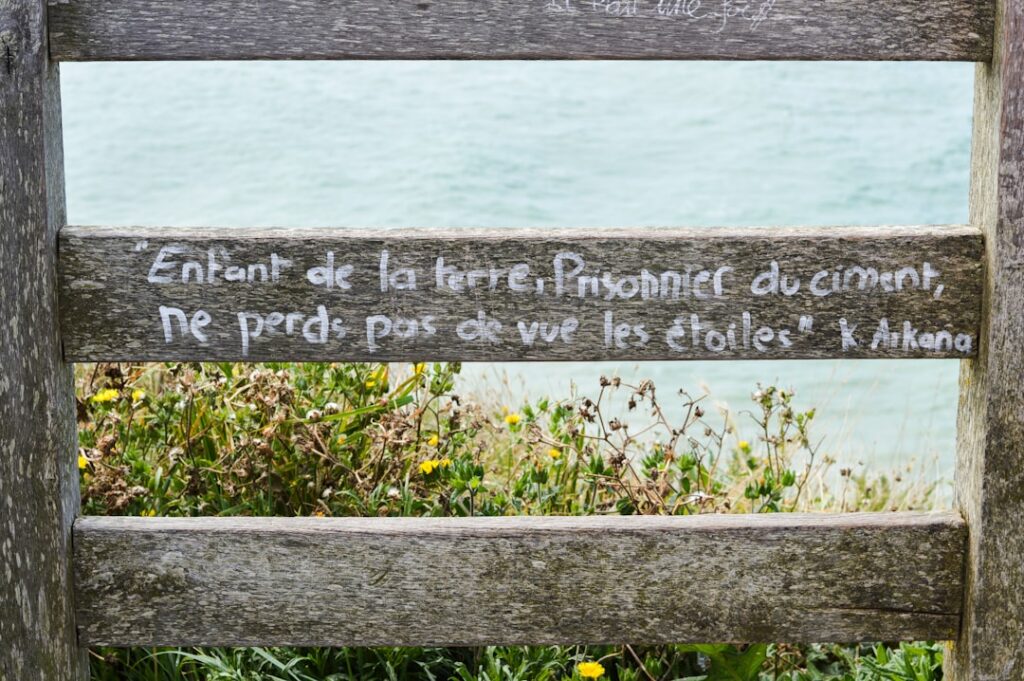 une fois
"Enfant de la terre, Prisonnier du ciment,
ne perds pas de vue les étoiles" K Arkana